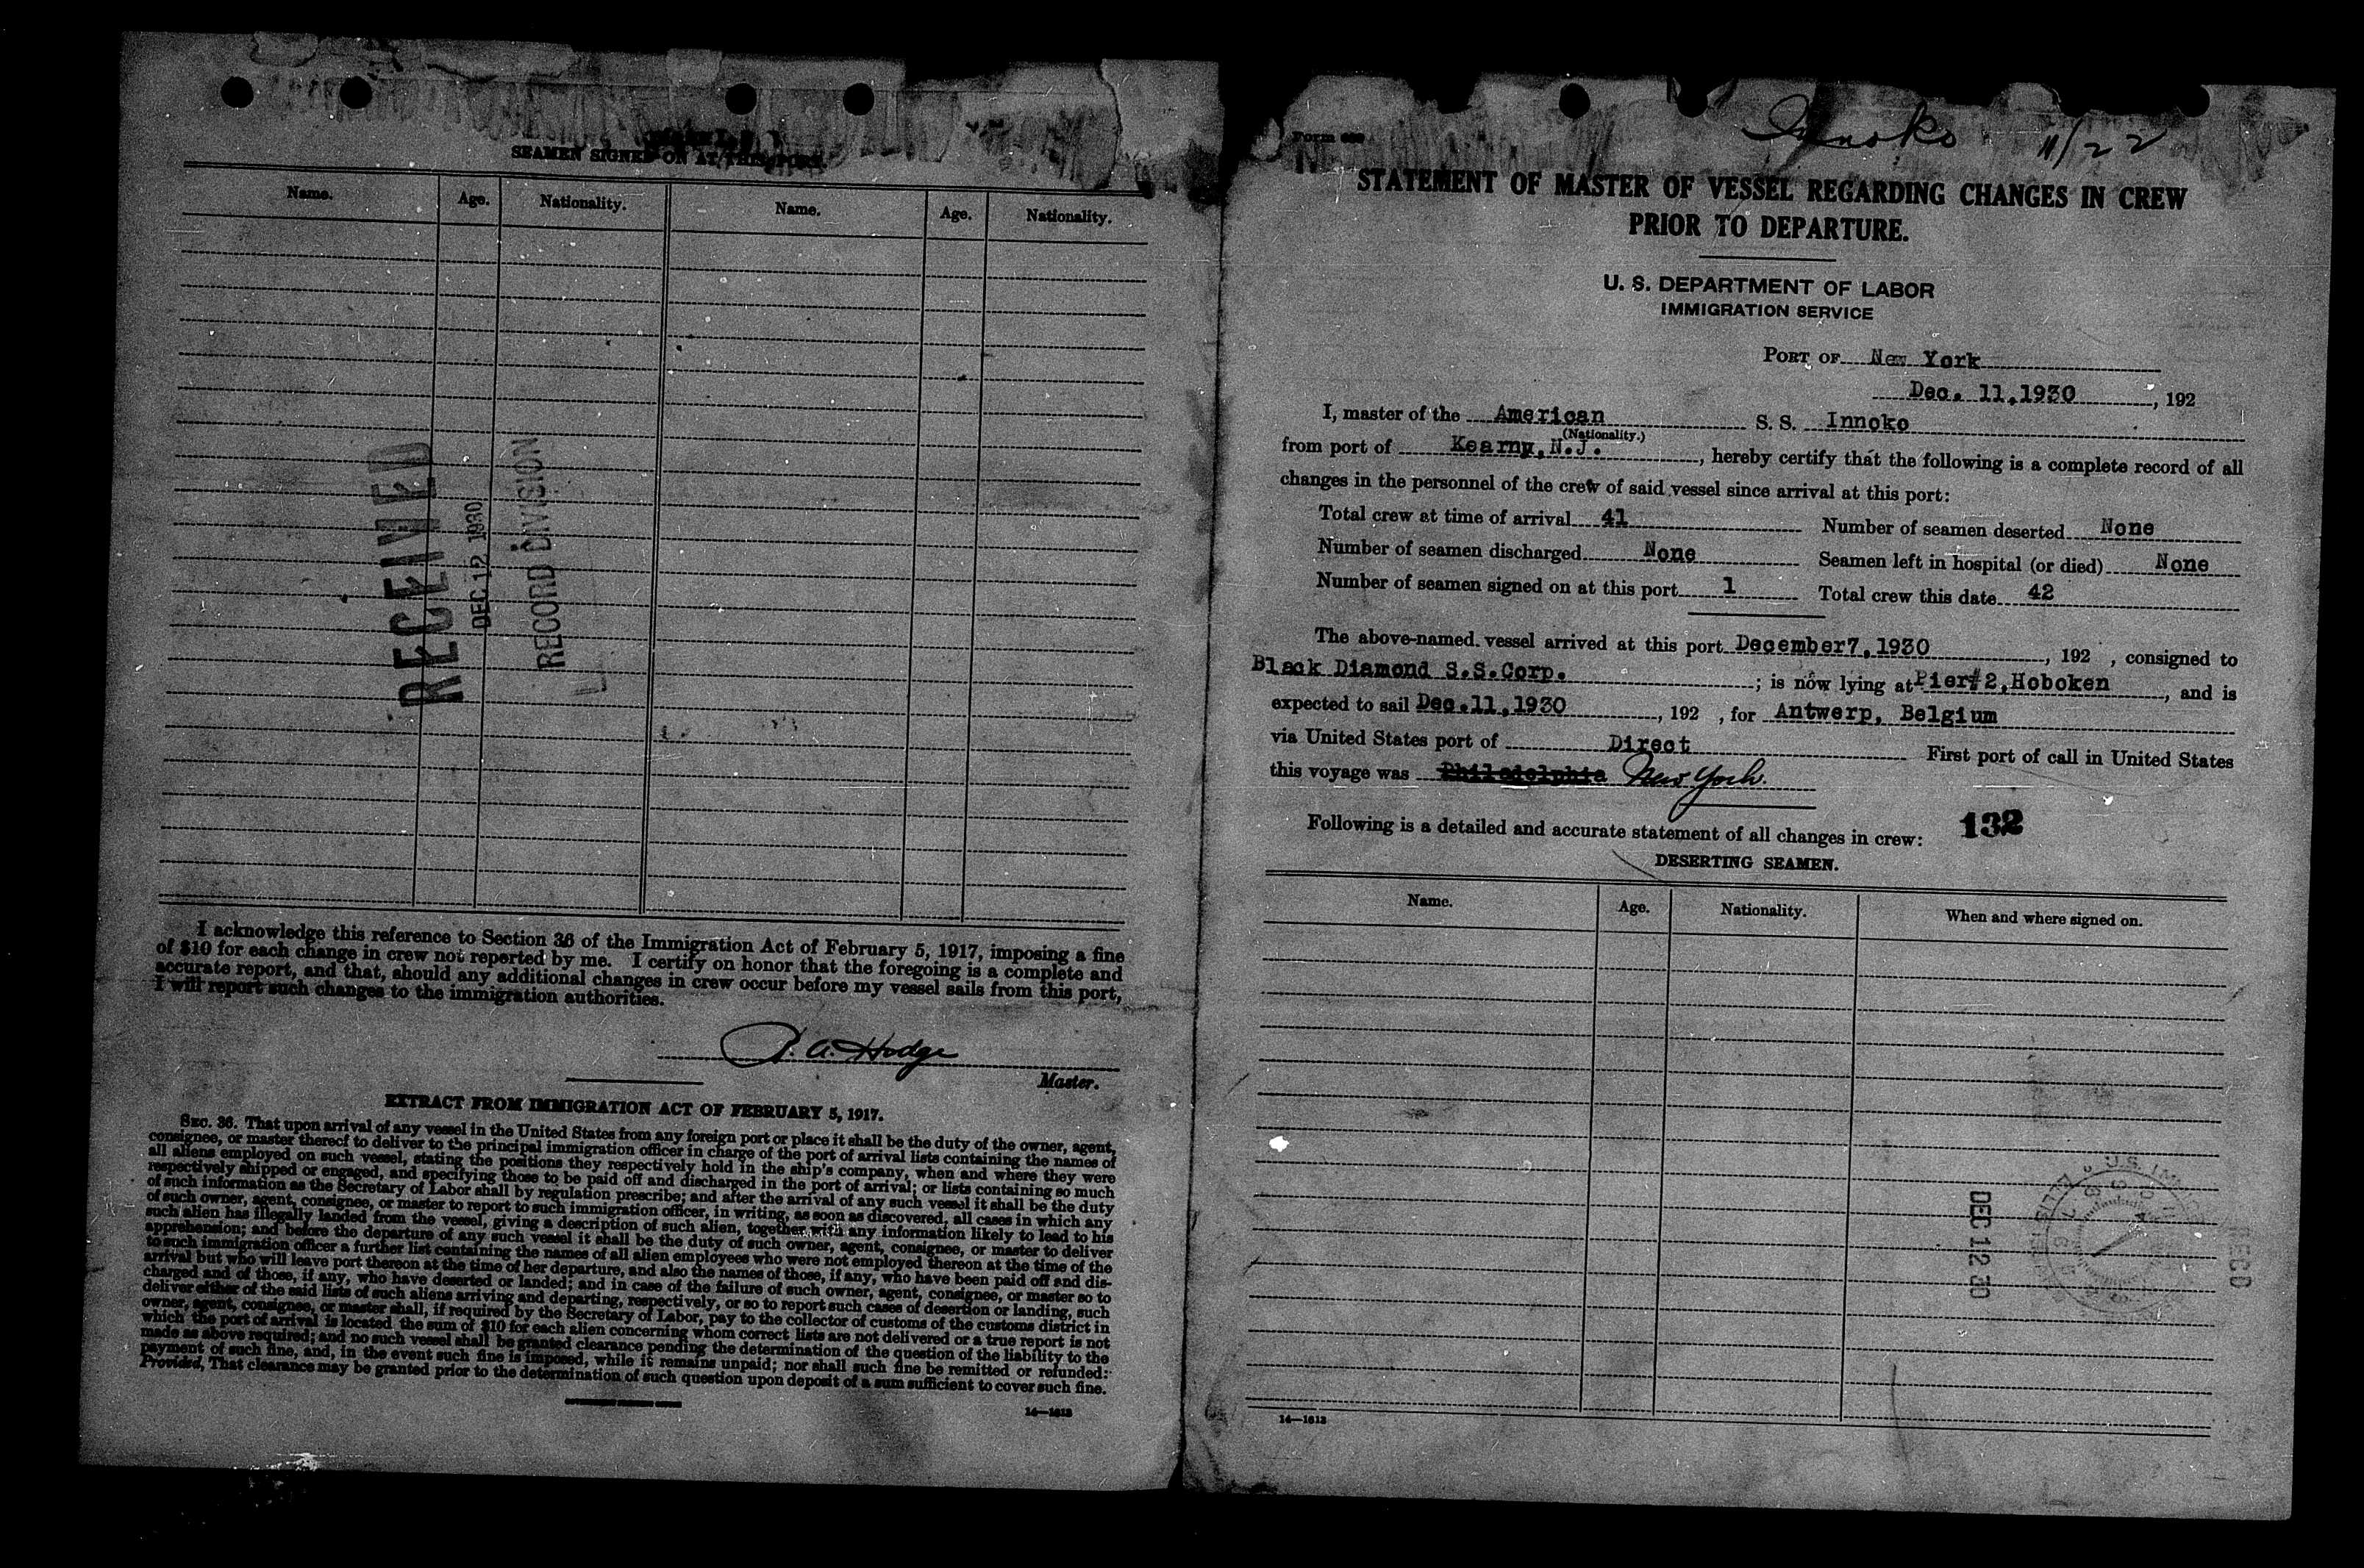 SEAMEN SIGNED ON AT THIS PORT.
Name. Age. Nationality. Name. Age. Nationality.
RECEIVED
DEC 12 1930
RECORD DIVISION
I acknowledge this reference to Section 36 of the Immigration Act of February 5, 1917, imposing a fine
of $10 for each change in crew not reported by me. I certify on honor that the foregoing is a complete and
accurate report, and that, should any additional changes in crew occur before my vessel sails from this port,
I will report such changes to the immigration authorities.
A. Hodge
Master.
EXTRACT FROM IMMIGRATION ACT OF FEBRUARY 5, 1917.
SEC. 36. That upon arrival of any vessel in the United States from any foreign port or place it shall be the duty of the owner, agent,
consignee, or master thereof to deliver to the principal immigration officer in charge of the port of arrival lists containing the names of
all aliens employed on such vessel, stating the positions they respectively hold in the ship's company, when and where they were
respectively shipped or engaged, and specifying those to be paid off and discharged in the port of arrival; or lists containing so much
of such information as the Secretary of Labor shall by regulation prescribe; and after the arrival of any such vessel it shall be the duty
of such owner, agent, consignee, or master to report to such immigration officer, in writing, as soon as discovered, all cases in which any
such alien has illegally landed from the vessel, giving a description of such alien, together with any information likely to lead to his
apprehension; and before the departure of any such vessel it shall be the duty of such owner, agent, consignee, or master to deliver
to such immigration officer a further list containing the names of all alien employees who were not employed thereon at the time of the
arrival but who will leave port thereon at the time of her departure, and also the names of those, if any, who have been paid off and dis-
charged and of those, if any, who have deserted or landed; and in case of the failure of such owner, agent, consignee, or master so to
deliver either of the said lists of such aliens arriving and departing, respectively, or so to report such cases of desertion or landing, such
owner, agent, consignee, or master shall, if required by the Secretary of Labor, pay to the collector of customs of the customs district in
which the port of arrival is located the sum of $10 for each alien concerning whom correct lists are not delivered or a true report is not
made as above required; and no such vessel shall be granted clearance pending the determination of the question of the liability to the
payment of such fine, and, in the event such fine is imposed, while it remains unpaid; nor shall such fine be remitted or refunded:
Provided, That clearance may be granted prior to the determination of such question upon deposit of a sum sufficient to cover such fine.
14—1613
Form
Innoko 11/22
STATEMENT OF MASTER OF VESSEL REGARDING CHANGES IN CREW
PRIOR TO DEPARTURE.
U. S. DEPARTMENT OF LABOR
IMMIGRATION SERVICE
PORT OF New York
Dec. 11,1930, 192
I, master of the American S. S. Innoko
(Nationality.)
from port of Kearny, N.J., hereby certify that the following is a complete record of all
changes in the personnel of the crew of said vessel since arrival at this port:
Total crew at time of arrival 41 Number of seamen deserted None
Number of seamen discharged None Seamen left in hospital (or died) None
Number of seamen signed on at this port 1 Total crew this date 42
The above-named vessel arrived at this port December7,1930, 192 , consigned to
Black Diamond S.S.Corp. ; is now lying at Pier#2,Hoboken, and is
expected to sail Dec.11,1930, 192 , for Antwerp, Belgium
via United States port of Direct First port of call in United States
this voyage was Philadelphia New York.
132
Following is a detailed and accurate statement of all changes in crew:
DESERTING SEAMEN.
Name. Age. Nationality. When and where signed on.
DEC 12 30
REC'D
14—1613